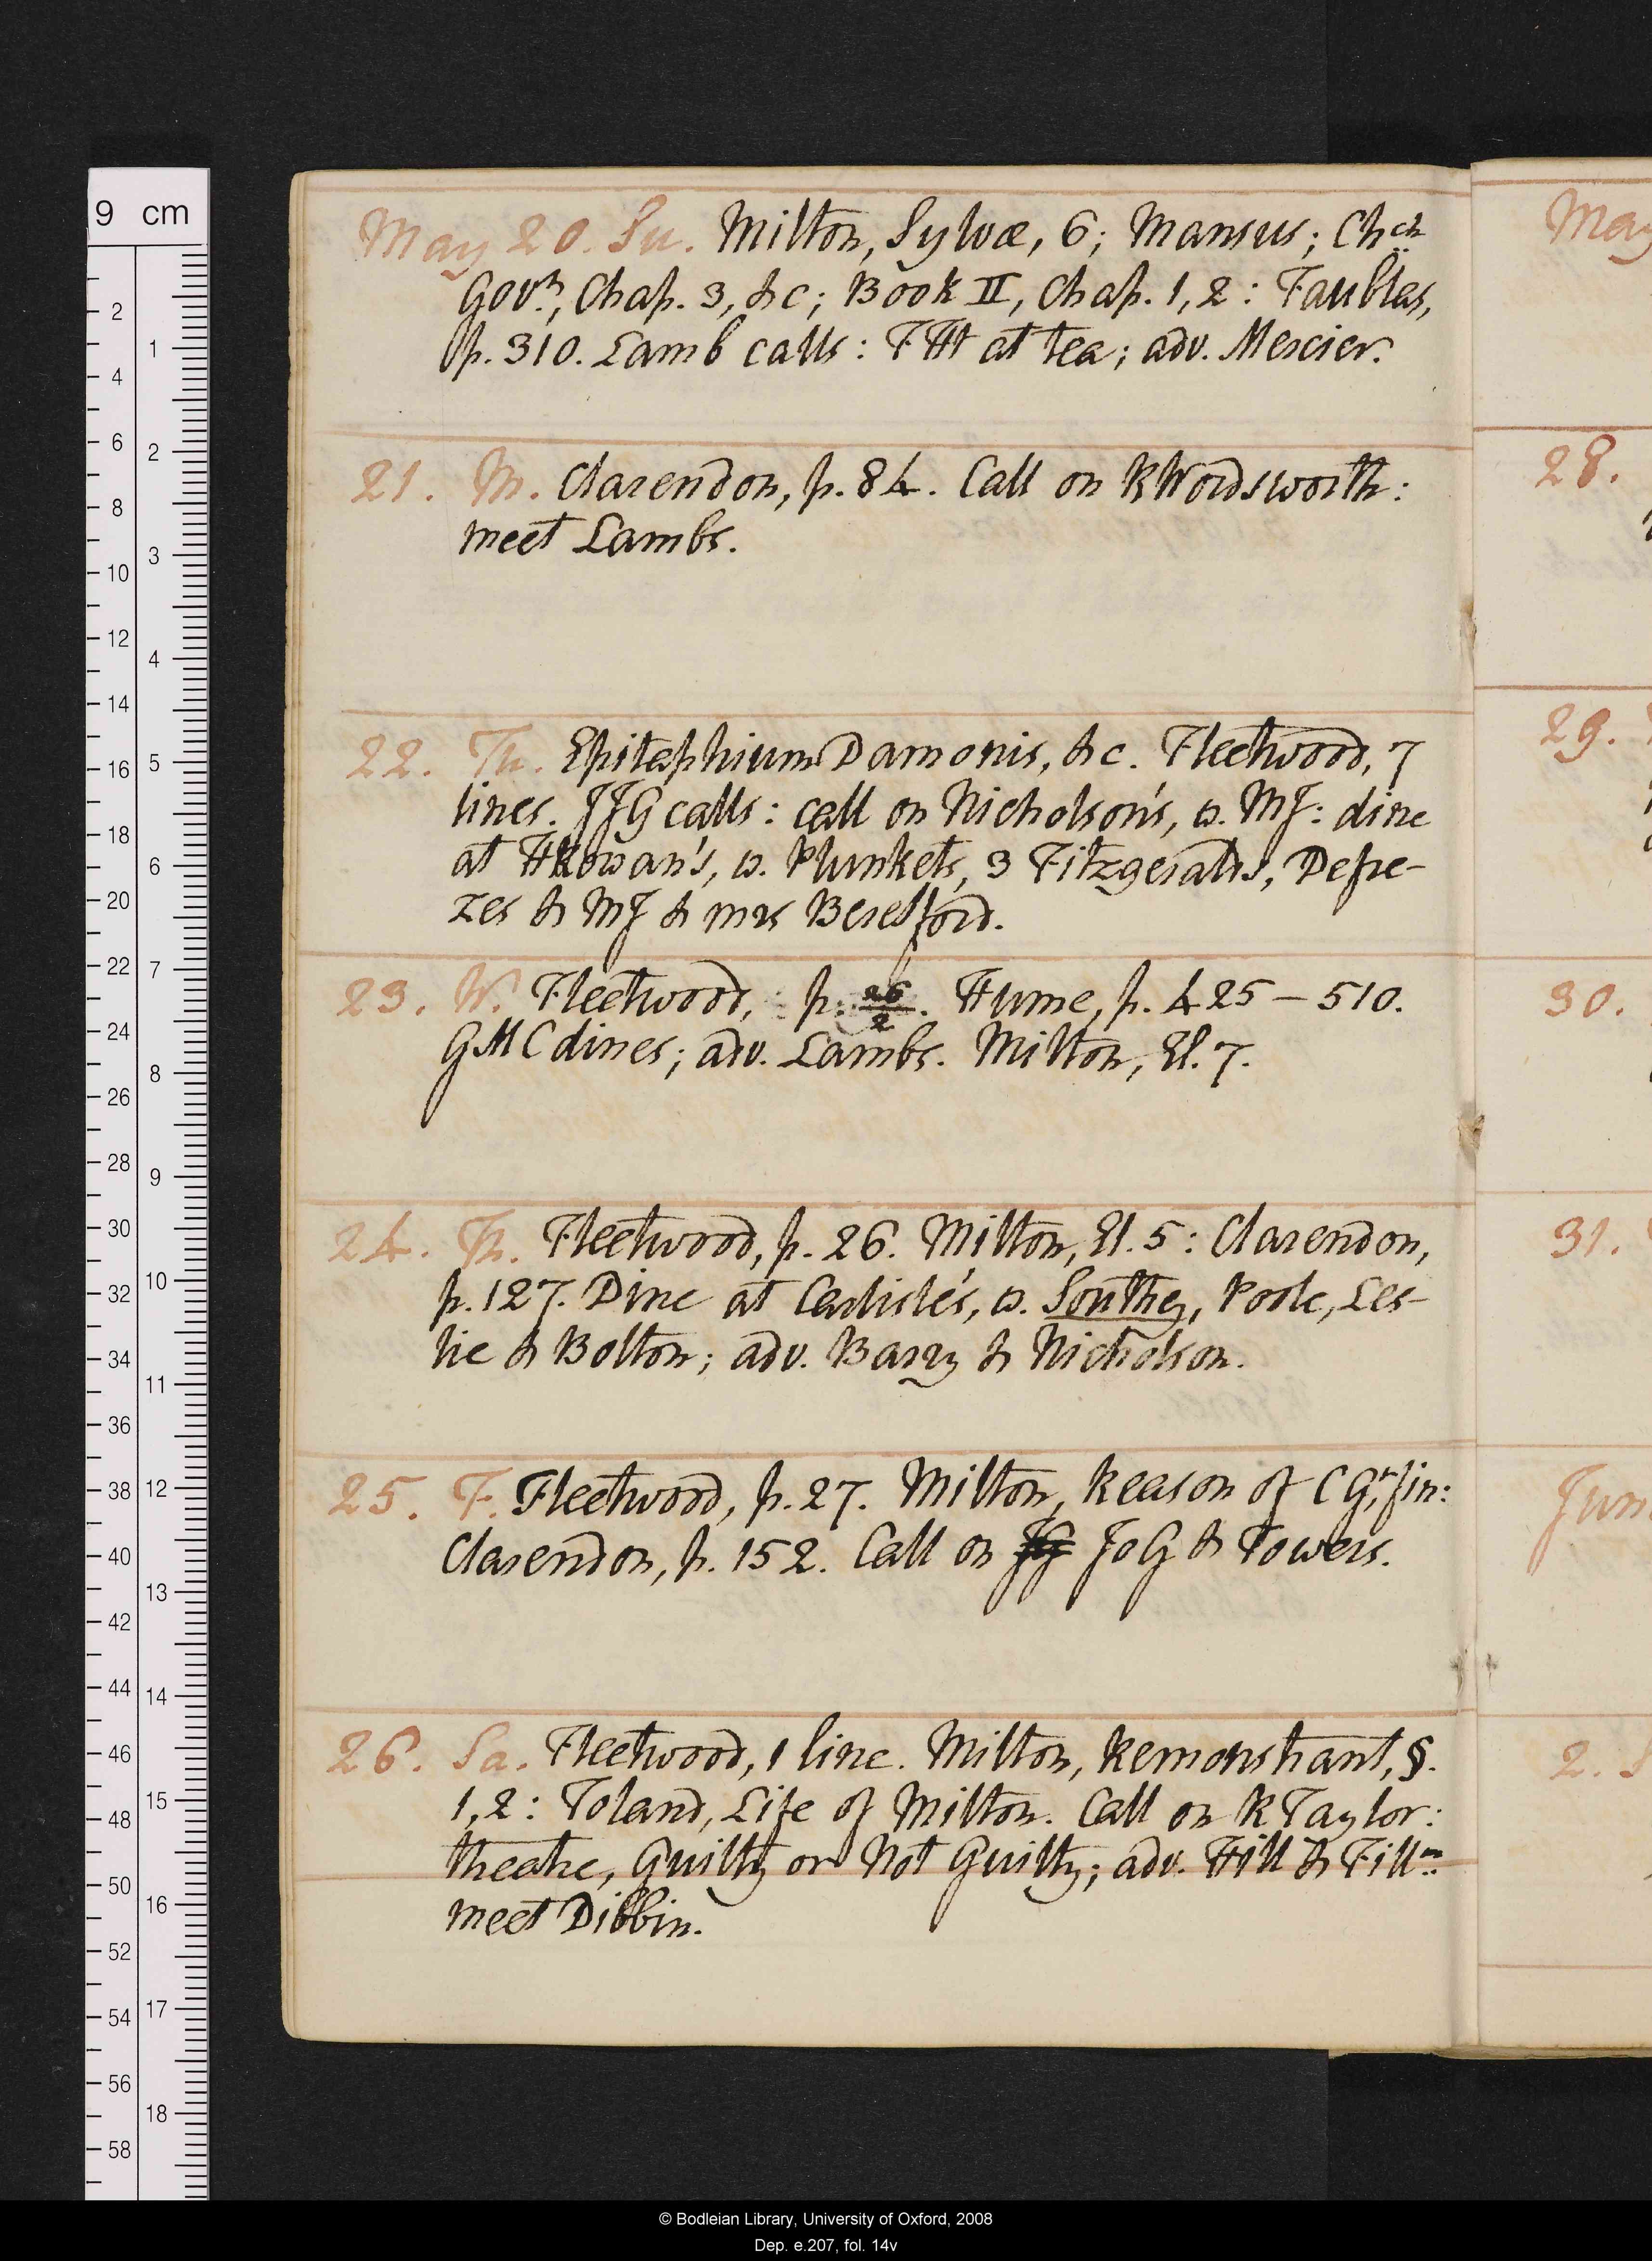 9 cm
May 20. Su. Milton, Sylvæ, 6; Mansus; Chch
Govt, Chap. 3, &c; Book II, Chap. 1, 2: Faublas,
p. 310. Lamb calls: THt at tea; adv. Mercier.
21. M. Clarendon, p. 84. Call on RWordsworth:
meet Lambs.
22. Tu. Epitaphium Damonis, &c. Fleetwood, 7
lines. JJG calls: call on Nicholson's, w. MJ: dine
at HRowan's, w. Plunkets, 3 Fitzgeralds, Depre-
zes & MJ & mrs Beresford.
23. W. Fleetwood, p. 26/2. Hume, p. 425–510.
GMC dines; adv. Lambs. Milton, El. 7.
24. Th. Fleetwood, p. 26. Milton, El. 5: Clarendon,
p. 127. Dine at Carlisle's, w. Southey, Poole, Les-
lie & Bolton; adv. Barry & Nicholson.
25. F. Fleetwood, p. 27. Milton, Reason of C Gt, fin:
Clarendon, p. 152. Call on JG JoG & Towers.
26. Sa. Fleetwood, 1 line. Milton, Remonstrant, §.
1, 2: Toland, Life of Milton. Call on RTaylor:
theatre, Guilty or Not Guilty; adv. Hill & Fillm
meet Dibbin.
May
28.
29.
30.
31.
Jun
2. S
2
4
6
8
10
12
14
16
18
20
22
24
26
28
30
32
34
36
38
40
42
44
46
48
50
52
54
56
58
1
2
3
4
5
6
7
8
9
10
11
12
13
14
15
16
17
18
© Bodleian Library, University of Oxford, 2008
Dep. e.207, fol. 14v